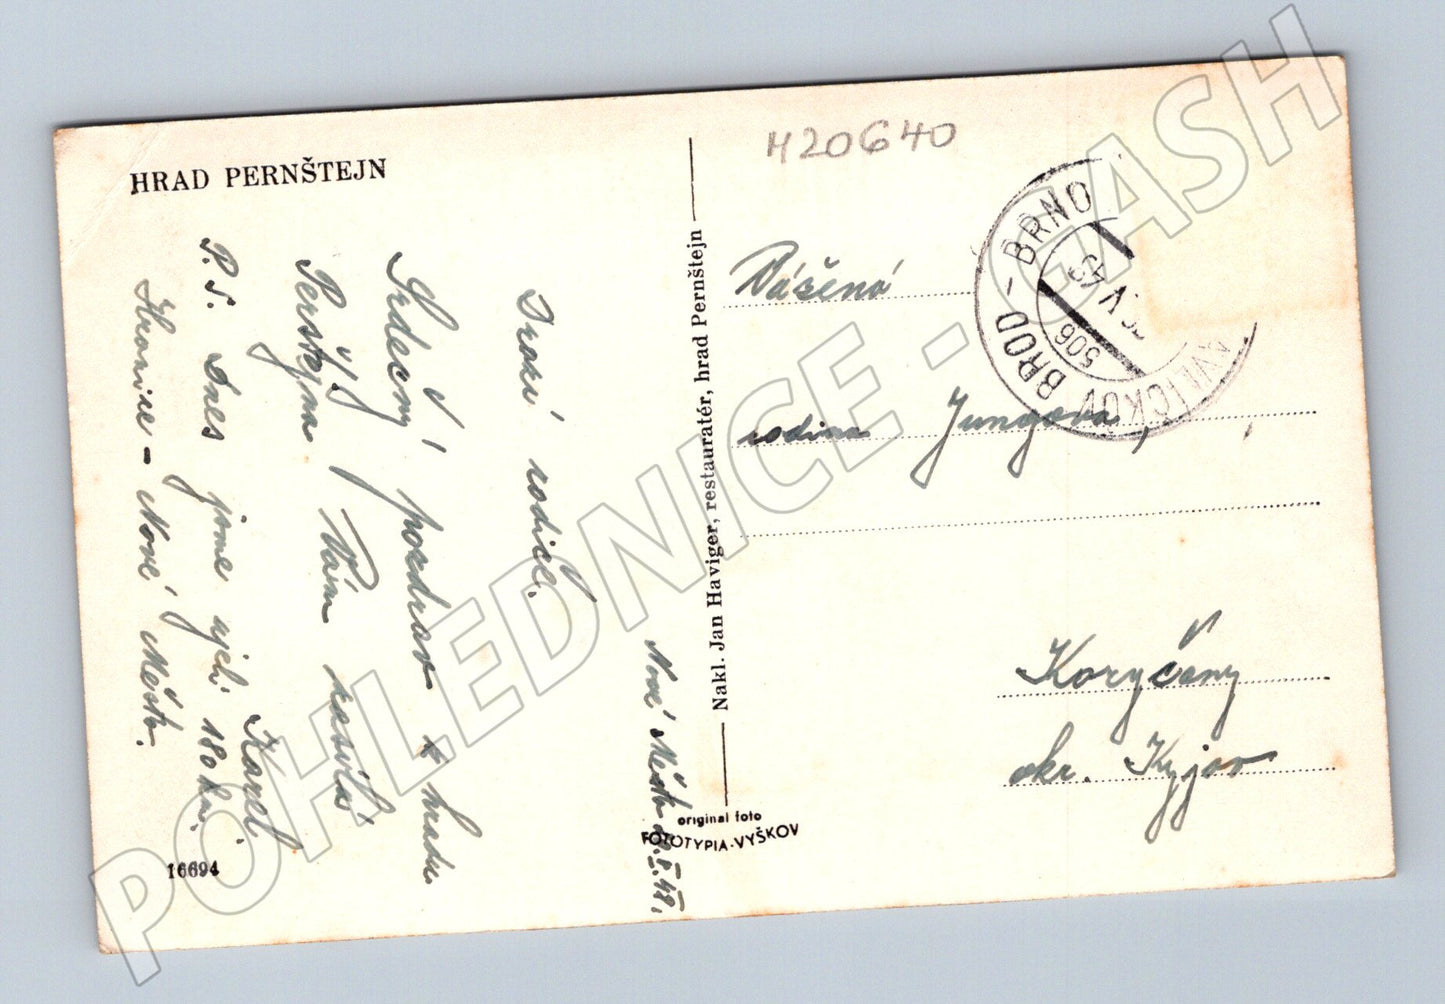 HRAD PERNŠTEJN
H20640
Nové Město
Drazí rodiče.
Srdečný pozdrav z hradu
Pernštejna Vám
Karel
P.S. Dnes jsme ujeli 180 km.
Nové Město.
16694
Nakl. Jan Haviger, restauratér, hrad Pernštejn
original foto
FOTOTYPIA-VYŠKOV
BROD - BRNO
506
Vážená
rodina Jungova,
Koryčany
okr. Kyjov
POHLEDNICE - GASH